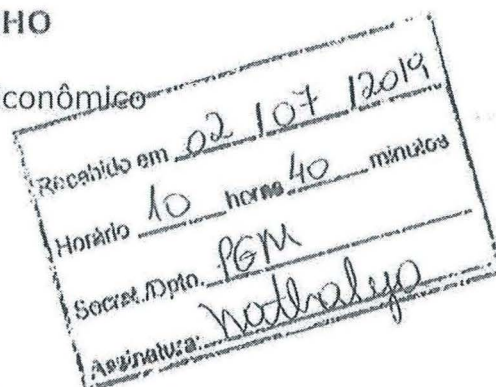 HO
conômico
Recebido em 02 / 07 / 2019
Horário 10 horas 40 minutos
Secret./Dpto. PGM
Assinatura: Nathalya